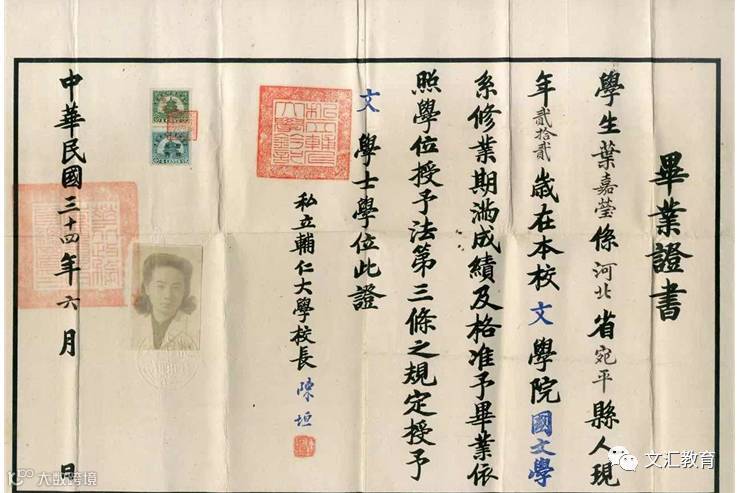 畢業證書
學生葉嘉瑩係河北省宛平縣人現
年貳拾貳歲在本校文學院國文學
系修業期滿成績及格准予畢業依
照學位授予法第三條之規定授予
文學士學位此證
私立輔仁大學校長陳垣
中華民國三十四年六月 日
文汇教育
大数跨境